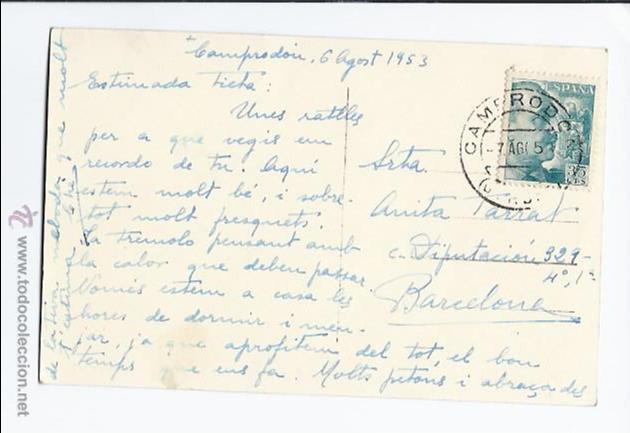 Camprodón, 6 Agost 1953
Estimada tieta:
Unes ratlles
per a que vegis em
recordo de tu. Aquí
estem molt bé, i sobre-
tot molt fresquets.
Ja tremolo pensant amb
la calor que deben passar.
Només estem a casa les
hores de dormir i men-
jar, ja que aprofitem del tot, el bon
temps que ens fa. Molts petons i abraçades
de la teva neboda que molt
t'estima
Srta.
Anita Tarrat
c. Diputación 329-
4º, 1ª
Barcelona
ESPAÑA
35
CTS
CAMPRODON
-7 AGO. 53
www.todocoleccion.net